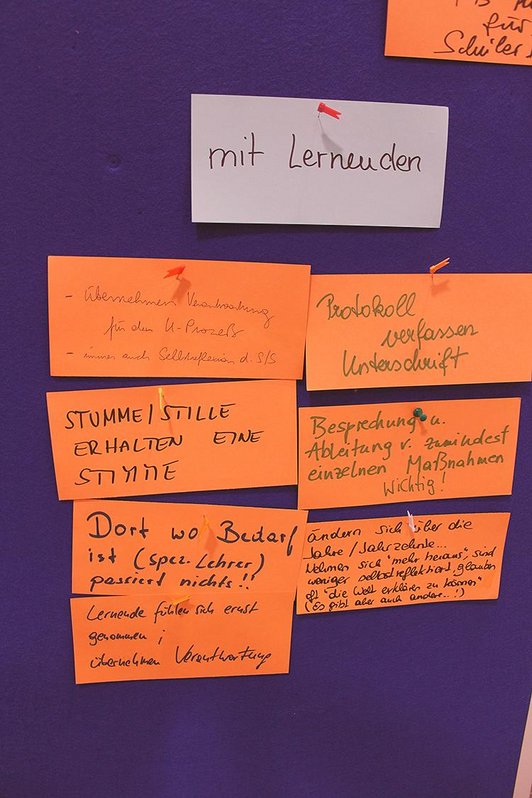 für
Schüler
mit Lernenden
- übernehmen Verantwortung
für den U-Prozeß
- immer auch Selbstreflexion d. S/S
Protokoll
verfassen
Unterschrift
STUMME/STILLE
ERHALTEN EINE
STIMME
Besprechung u.
Ableitung v. zumindest
einzelnen Maßnahmen
wichtig!
Dort wo Bedarf
ist (spez. Lehrer)
passiert nichts!!
ändern sich über die
Jahre/Jahrzehnte...
Nehmen sich "mehr heraus", sind
weniger selbstreflektiert, glauben
oft "die Welt erklären zu können"
(Es gibt aber auch andere...!)
Lernende fühlen sich ernst
genommen ;
übernehmen Verantwortung